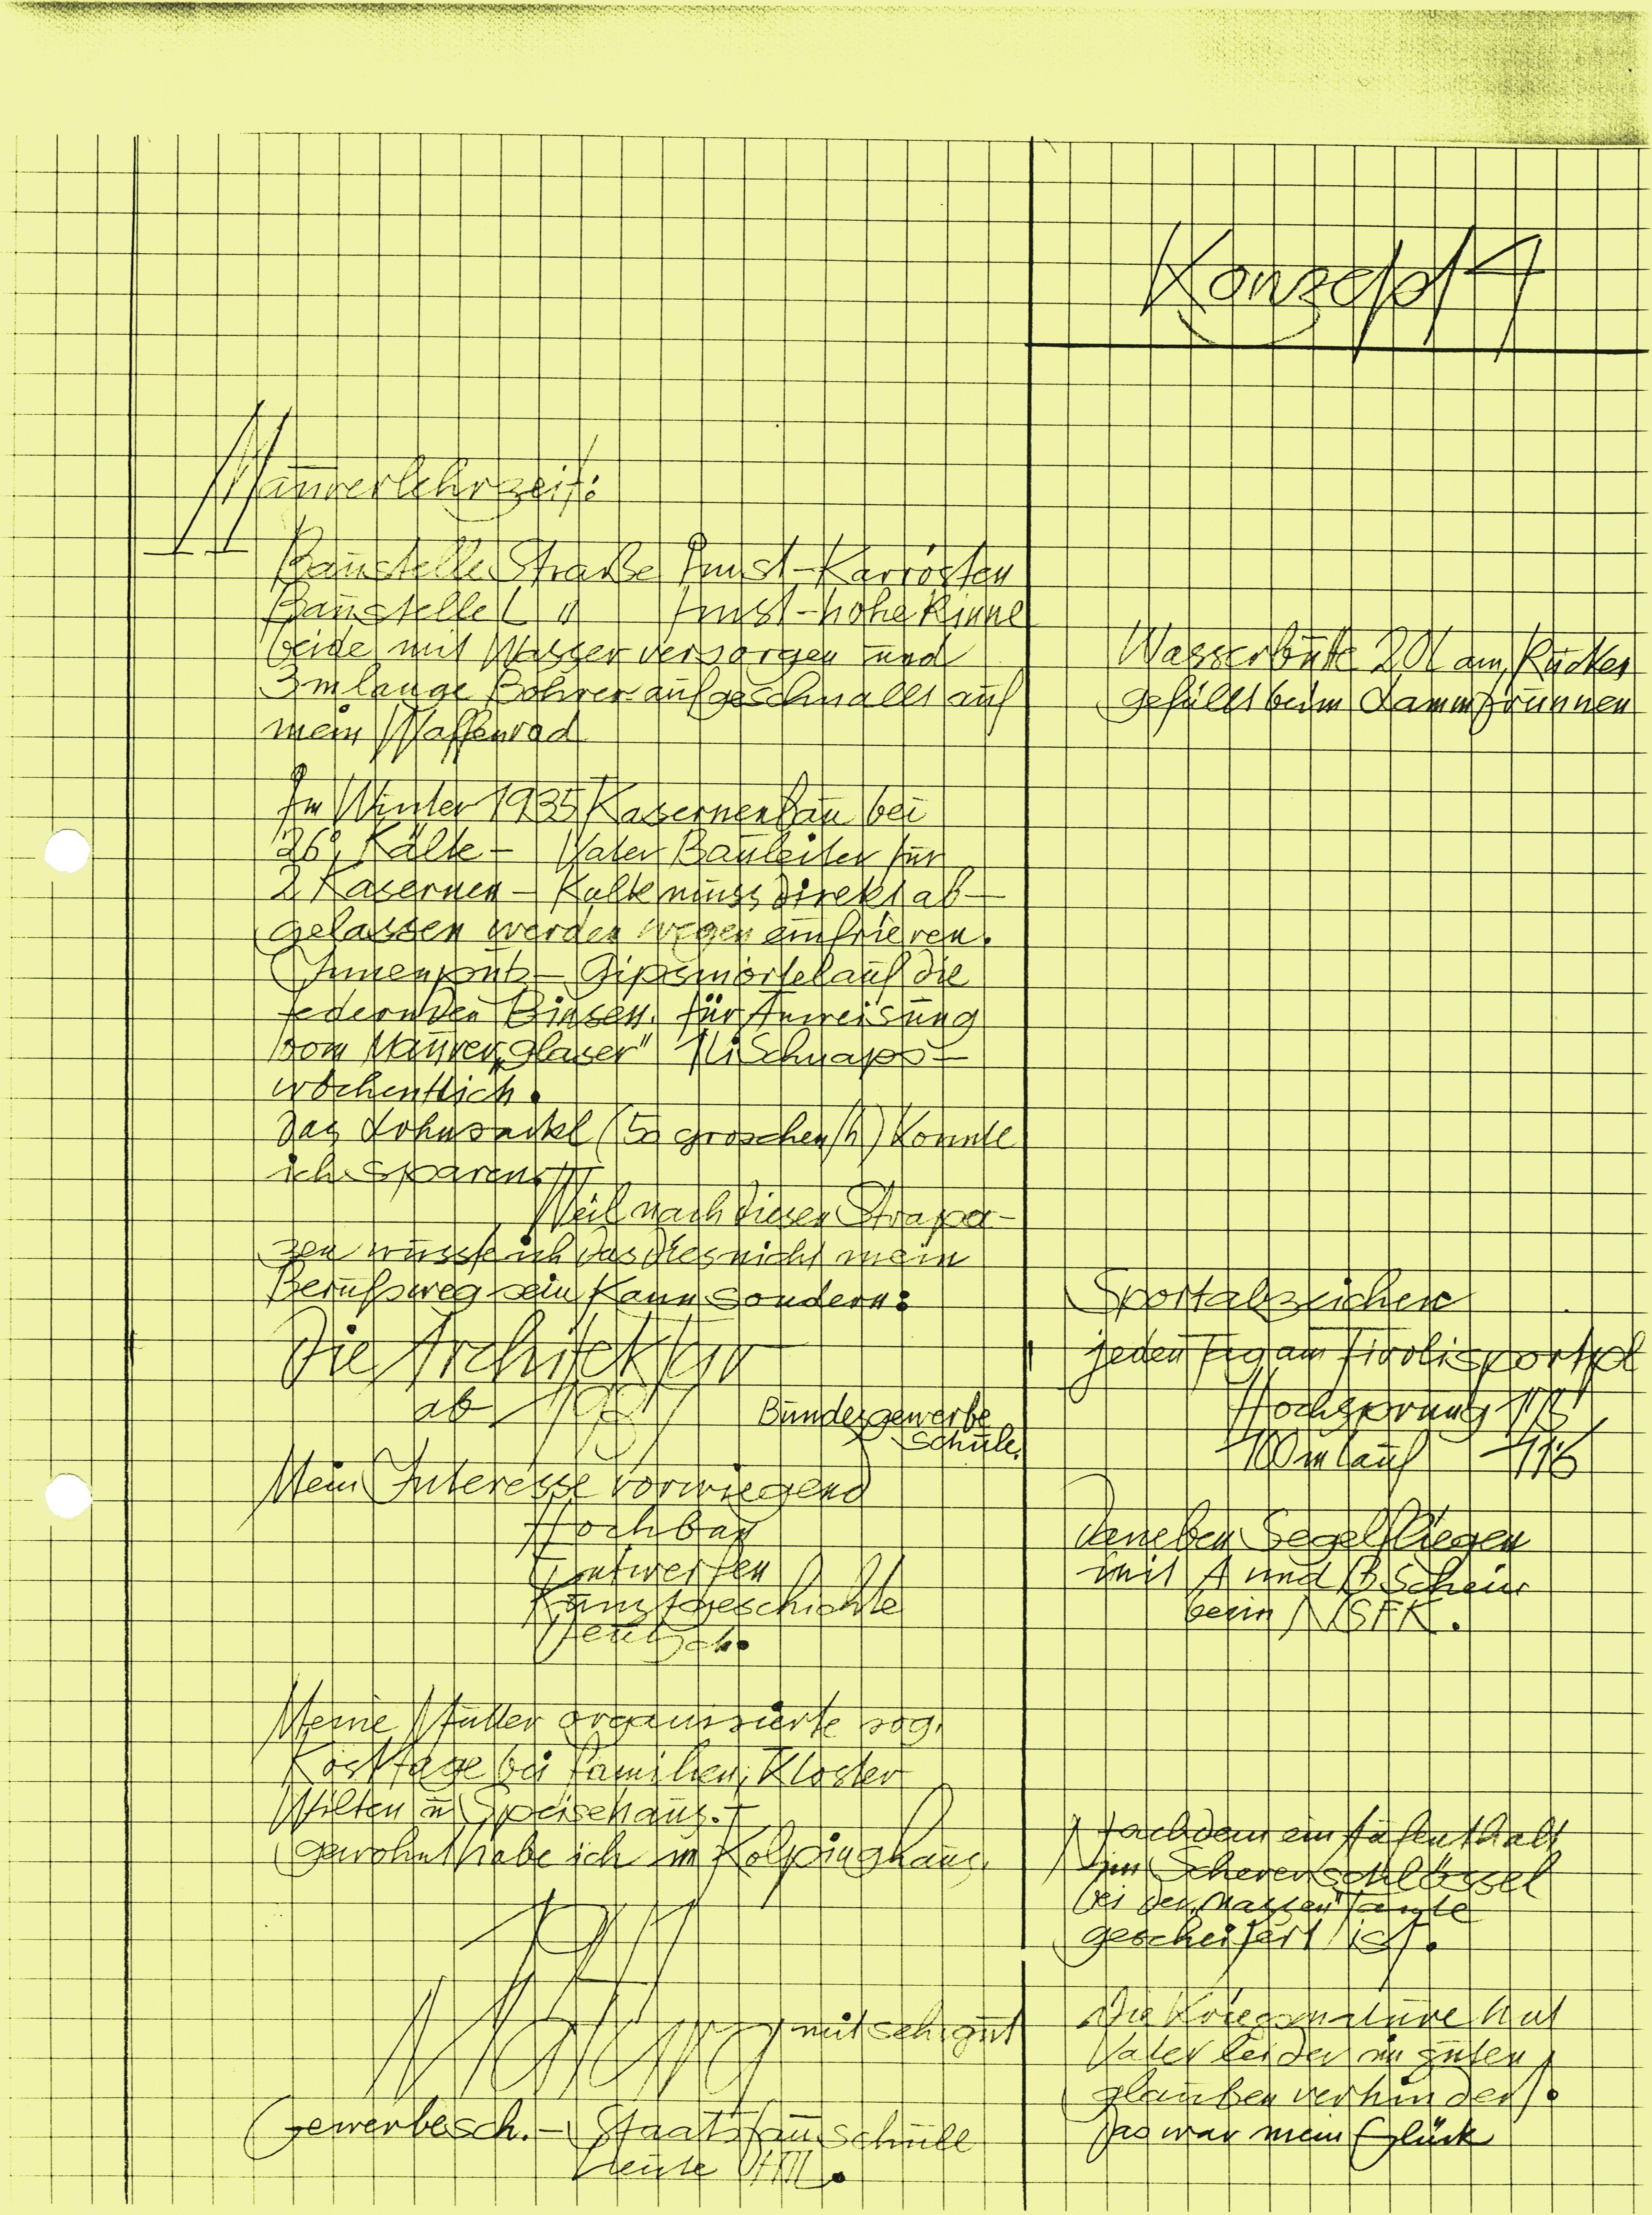 Konzept 4
Maurerlehrzeit:
Baustelle Straße Imst-Karrösten
Baustelle " Imst-hohe Rinne
beide mit Wasser versorgen und
3m lange Bohrer aufgeschnallt auf
mein Waffenrad
Wasserbütte 20l am Rücken
gefüllt beim Lammbrunnen
Im Winter 1935 Kasernenbau bei
26° Kälte - Vater Bauleiter für
2 Kasernen - Kalk muss direkt ab-
gelassen werden wegen einfrieren.
Innenputz - Gipsmörtel auf die
federnden Binsen. für Anweisung
vom Maurer "glaser" 1 Li Schnaps -
wöchentlich.
das Lohnsackl (50 groschen/h) konnte
ich sparen.
Weil nach diesen Strapa-
zen wusste ich das dies nicht mein
Berufsweg sein kann sondern:
Die Architektur
ab 1937 Bundesgewerbe
schule.
Mein Interesse vorwiegend
Hochbau
Entwerfen
Kunstgeschichte
Deutsch.
Sportabzeichen
jeden Tag am Tivolisportpl
Hochsprung 175
100 m lauf 11.6
Daneben Segelfliegen
mit A und B Schein
beim NSFK.
Meine Mutter organisierte sog.
Kosttage bei Familien, Kloster
Wilten u Speisehaus. -
gewohnt habe ich im Kolpinghaus.
Nachdem ein Aufenthalt
im Scherenschlössel
bei der "nassen" Tante
gescheitert ist.
1941
Matura mit sehr gut
Gewerbesch. - Staatsbauschule
heute HTL.
Die Kriegsmatura hat
Vater leider im guten
glauben verhindert.
Das war mein Glück